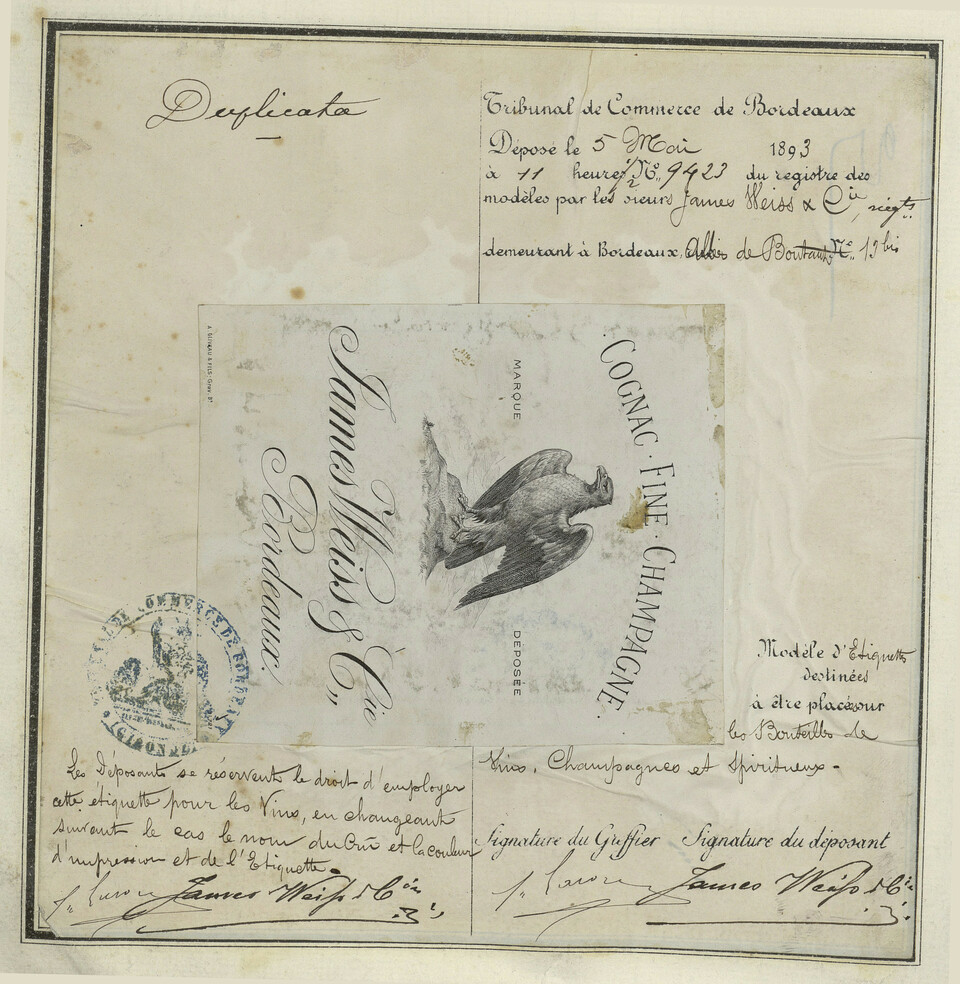 Duplicata
Tribunal de Commerce de Bordeaux
Déposé le 5 Mai 1893
à 11 heures 1/2 No. 9423 du registre des
modèles par les sieurs James Weiss & Cie, négts.
demeurant à Bordeaux, de No. 13 bis
COGNAC · FINE · CHAMPAGNE.
MARQUE DEPOSÉE
James Weiss & Cie,
Bordeaux.
TRIBUNAL DE COMMERCE DE BORDEAUX
(GIRONDE)
Modèle d'Etiquettes
destinées
à être placés sur
les Bouteilles de
Vins, Champagnes et Spiritueux -
Les Déposants se réservent le droit d'employer
cette étiquette pour les Vins, en changeant
suivant le cas le nom du Crû et la couleur
d'impression et de l'Etiquette.
James Weiss & Cie
Signature du Greffier Signature du déposant
James Weiss & Cie